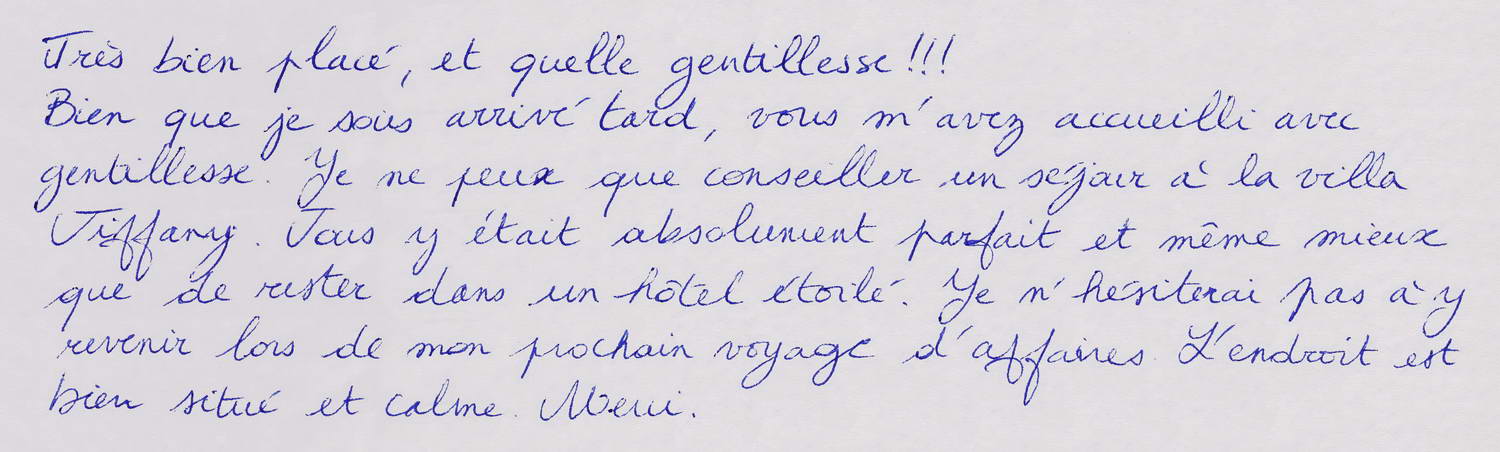 Très bien placé, et quelle gentillesse !!!
Bien que je sois arrivé tard, vous m'avez accueilli avec
gentillesse. Je ne peux que conseiller un séjour à la villa
Tiffany. Tous y était absolument parfait et même mieux
que de rester dans un hôtel étoilé. Je n'hésiterai pas à y
revenir lors de mon prochain voyage d'affaires. L'endroit est
bien situé et calme. Merci.